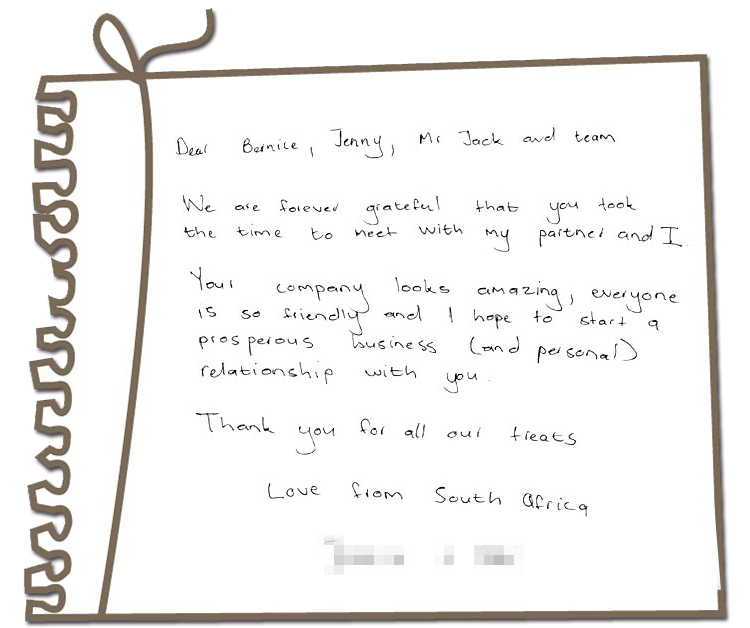 Dear Bernice, Jenny, Mr Jack and team
We are forever grateful that you took
the time to meet with my partner and I.
Your company looks amazing, everyone
is so friendly and I hope to start a
prosperous business (and personal)
relationship with you.
Thank you for all our treats
Love from South Africa